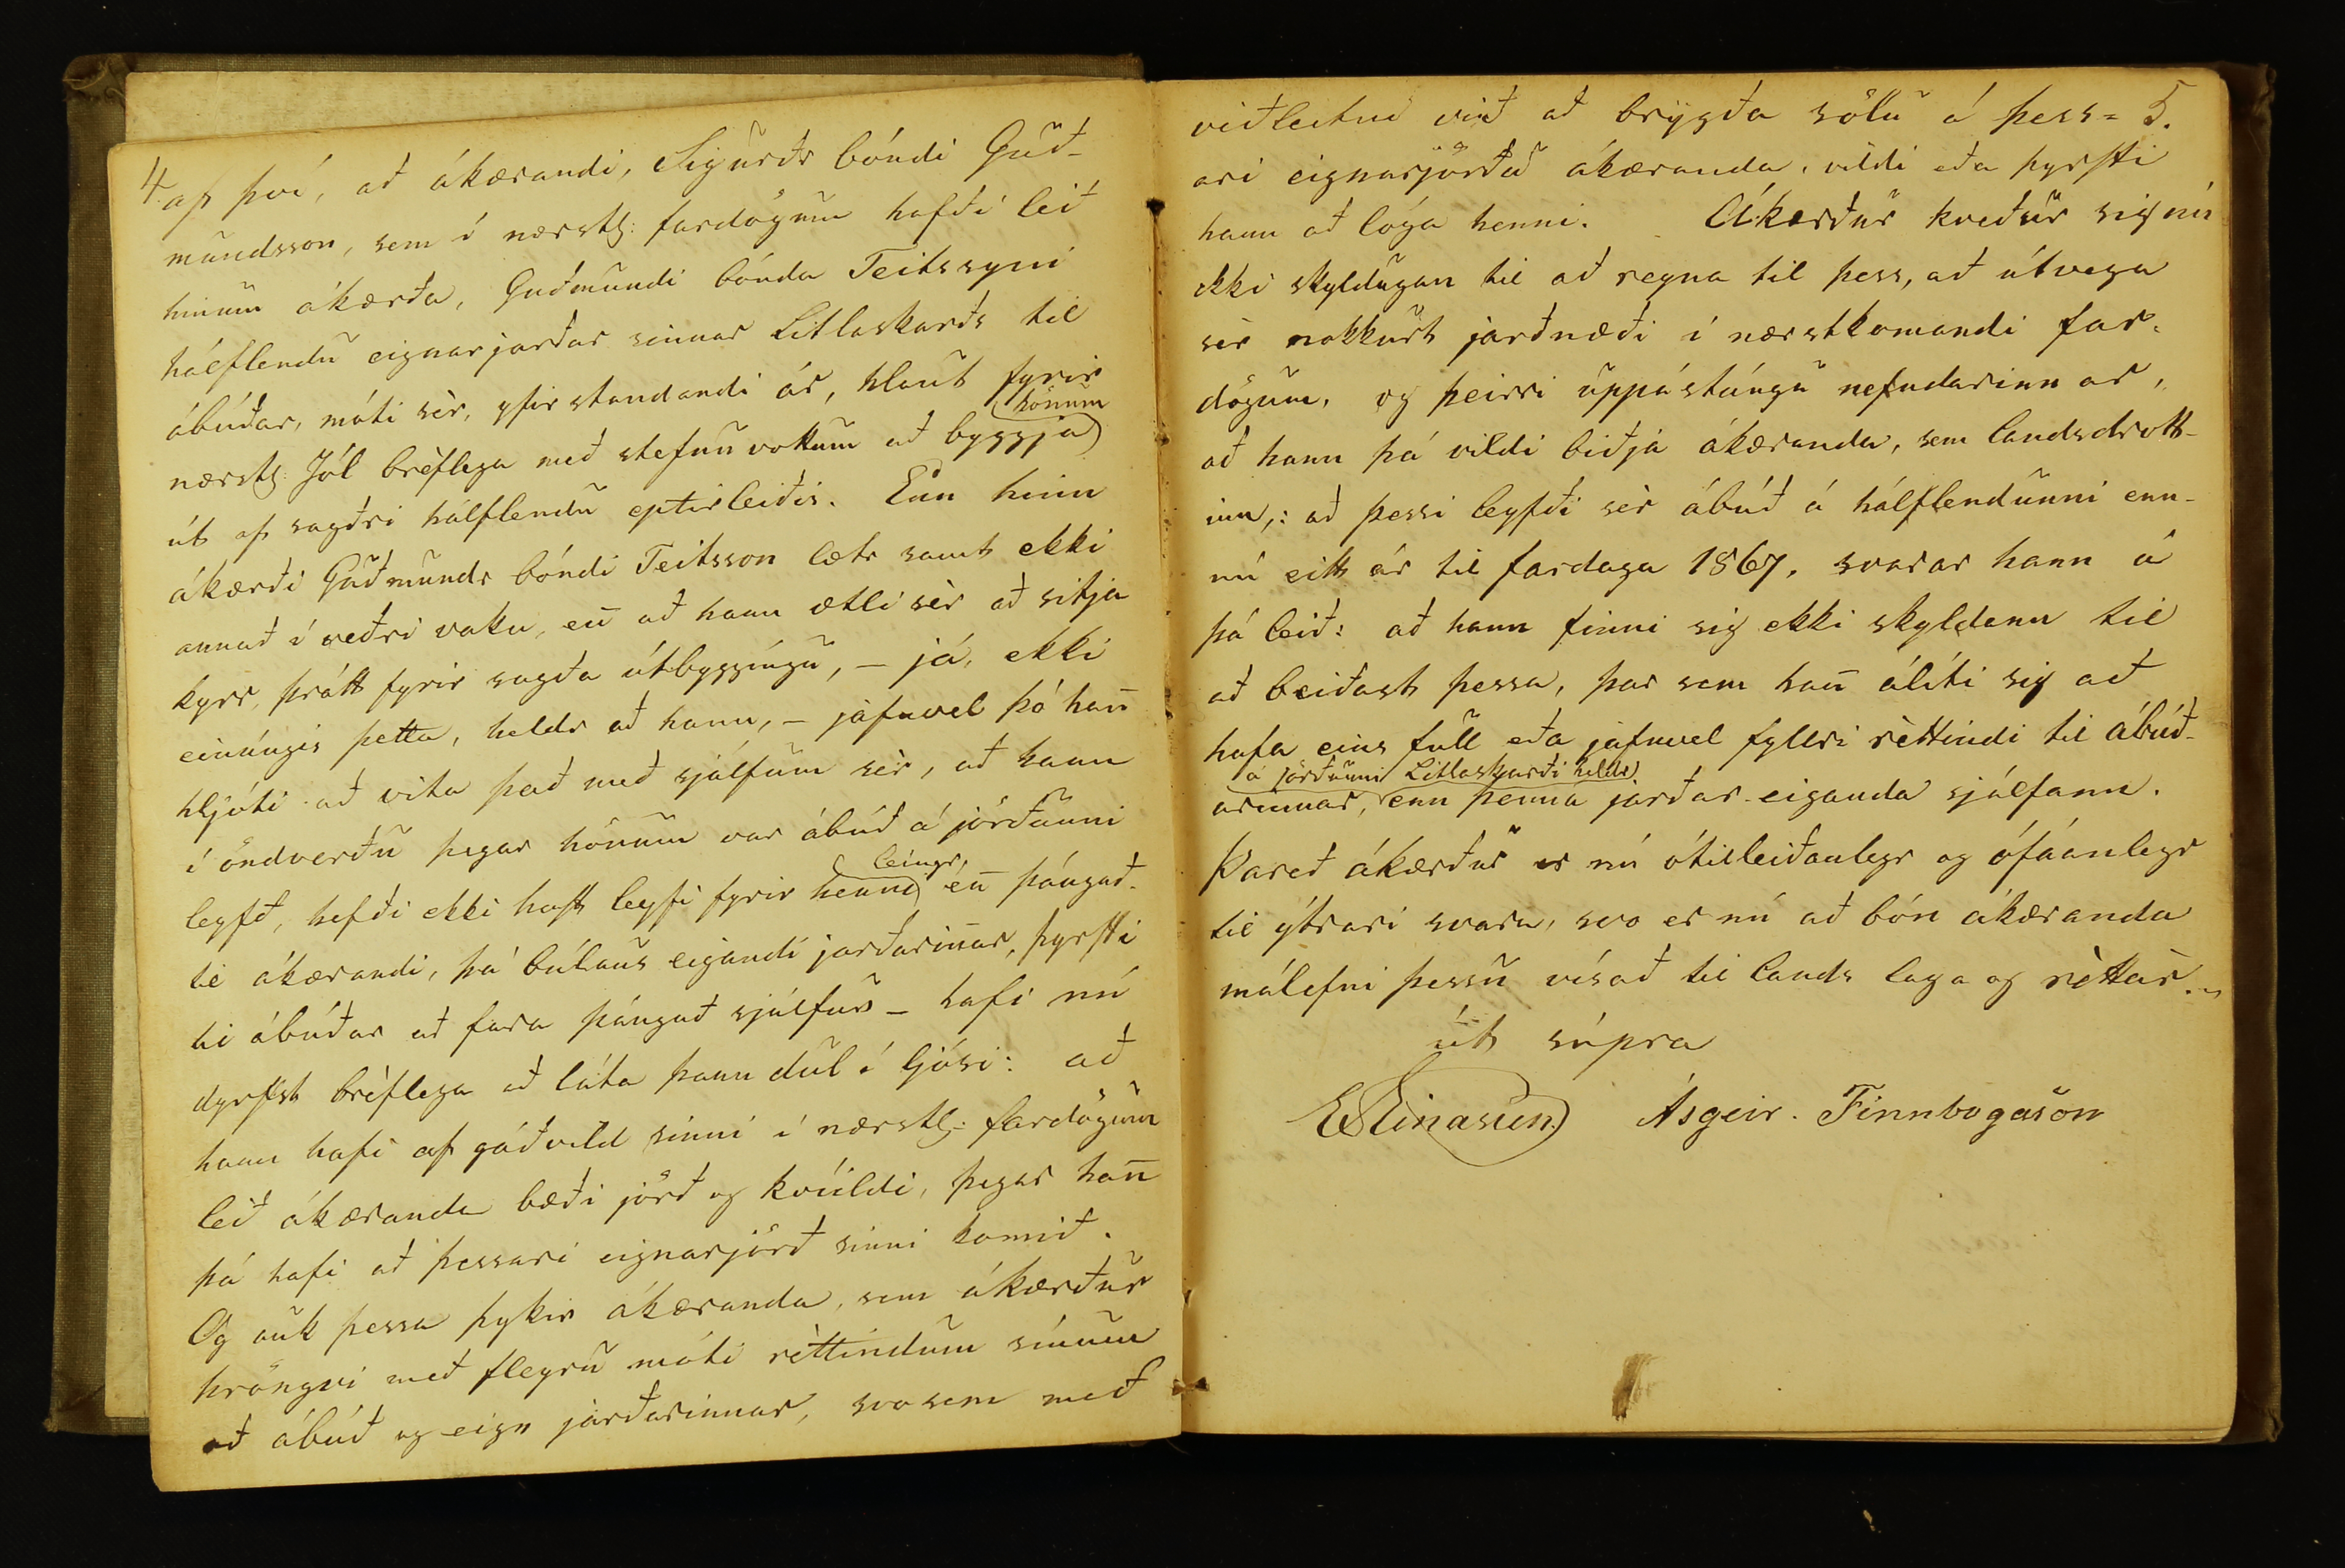 4. af því, að ákærandi, Sigurðr bóndi Guð-
mundsson, sem í nærstl: fardögum hafði léð
hinum ákærða, Guðmundi bónda Teitssyni
hálflendu eignarjarðar sinnar Litlaskarðs til
ábúðar, móti sèr, yfirstandandi ár, hlaut fyrir
hönum
nærstl: Jól brèflega með stefnuvottum að byggja
út af sagðri hálflendu eptirleiðis. Enn hinn
ákærði Guðmundr bóndi Teitsson lætr samt ekki
annað í veðri vaka, en̄ að hann ætli sèr að sitja
kyrr, þrátt fyrir sagða útbyggíngu, – já, ekki
einúngis þetta, heldr að hann, – jafnvel þó han̄
hljóti að vita það með sjálfum sèr, að hann
í öndverðu þegar hönum var ábúð á jörðunni
leingr,
leyfð, hefði ekki haft leyfi fyrir henni en̄ þángað-
til ákærandi, þá búlaus eigandi jarðarin̄ar, þyrfti
til ábúðar að fara þángað sjálfur – hafi nú
dyrfst brèflega að láta þann dul í ljósi: að
hann hafi af góðvild sinni í nærstl: fardögum
léð ákæranda bæði jörð og kvíildi, þegar han̄
þá hafi að þessari eignarjörð sinni komið.
Og auk þessa þykir ákæranda, sem ákærður
þröngvi með fleyru móti rèttindum sínum
að ábúð og eign jarðarinnar, svosem með
5.
viðleitni við að brygða sölu á þess=
ari eignarjörðu ákæranda, vildi eða þyrfti
hann að lóga henni. Ákærður kveður sig nú
ekki skyldugan til að regna til þess, að útvega
sèr nokkurt jarðnæði í nærstkomandi far-
dögum, og þeirri uppástúngu nefndarinnar,
að hann þá vildi biðja ákæranda, sem landsdrott-
inn,: að þessi leyfði sèr ábúð á hálflendunni enn-
nú eitt ár til fardaga 1867, svarar hann á
þá leið: að hann finni sig ekki skyldann til
að beiðast þessa, þar sem han̄ álíti sig að
hafa eins full eða jafnvel fyllri rèttindi til ábúð-
á jörðunni Litlaskarði heldr
arinnar, enn þenna jarðar-eiganda sjálfann.
Þareð ákærður er nú ótilleiðanlegr og ófáanlegr
til ýtrari svara, svo er nú að bón ákæranda
málefni þessu vísað til lands laga og rèttar.„
út súpra
EEinarsen. Ásgeir. Finnbogason